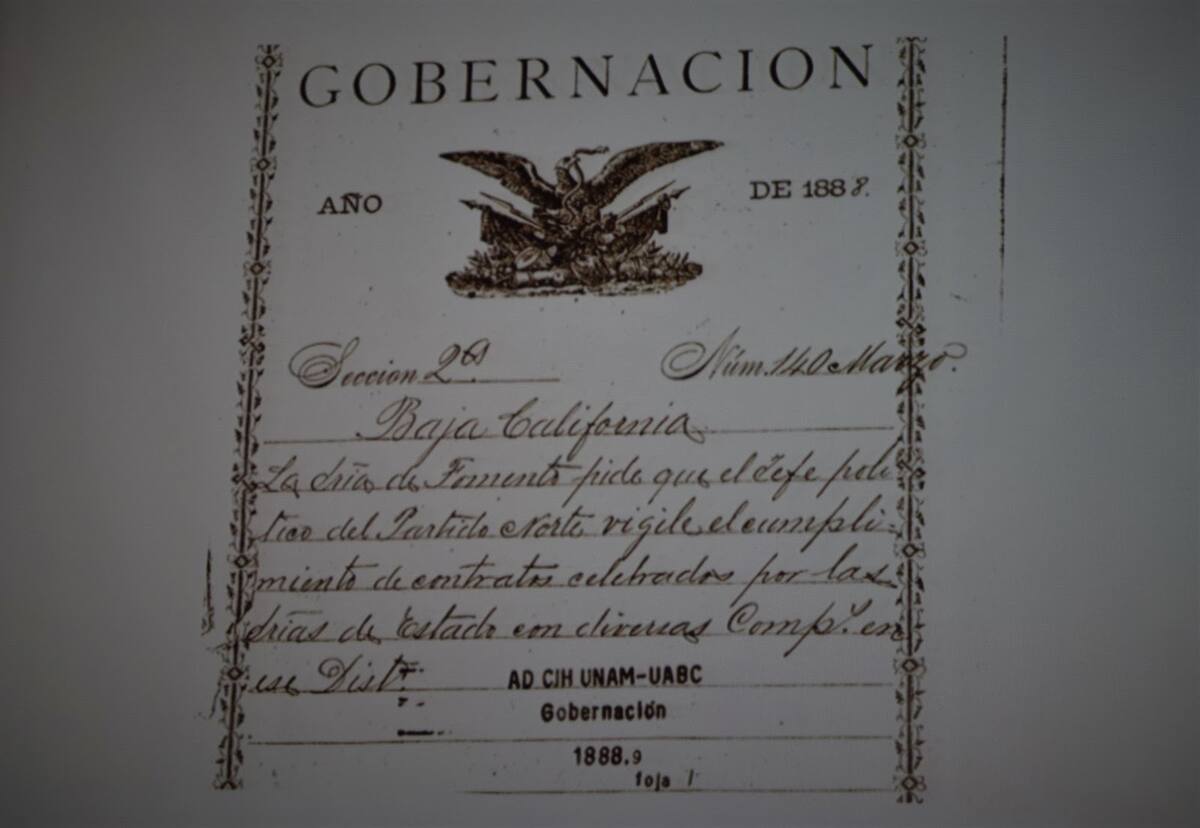 GOBERNACION
AÑO DE 1888.
Seccion 2ª Núm. 140 Marzo.
Baja California
La Sría de Fomento pide que el Jefe polí
tico del Partido Norte vigile el cumpli-
miento de contratos celebrados por las
Srías de Estado con diversas Comps. en
ese Distº.
AD CIH UNAM-UABC
Gobernación
1888.9
foja 1